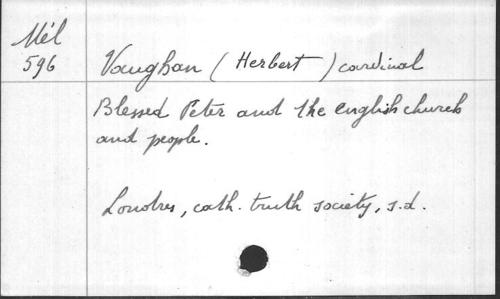 Mél
596
Vaughan (Herbert) cardinal
Blessed Peter and the english church
and people.
Londres, cath. truth society, s.d.